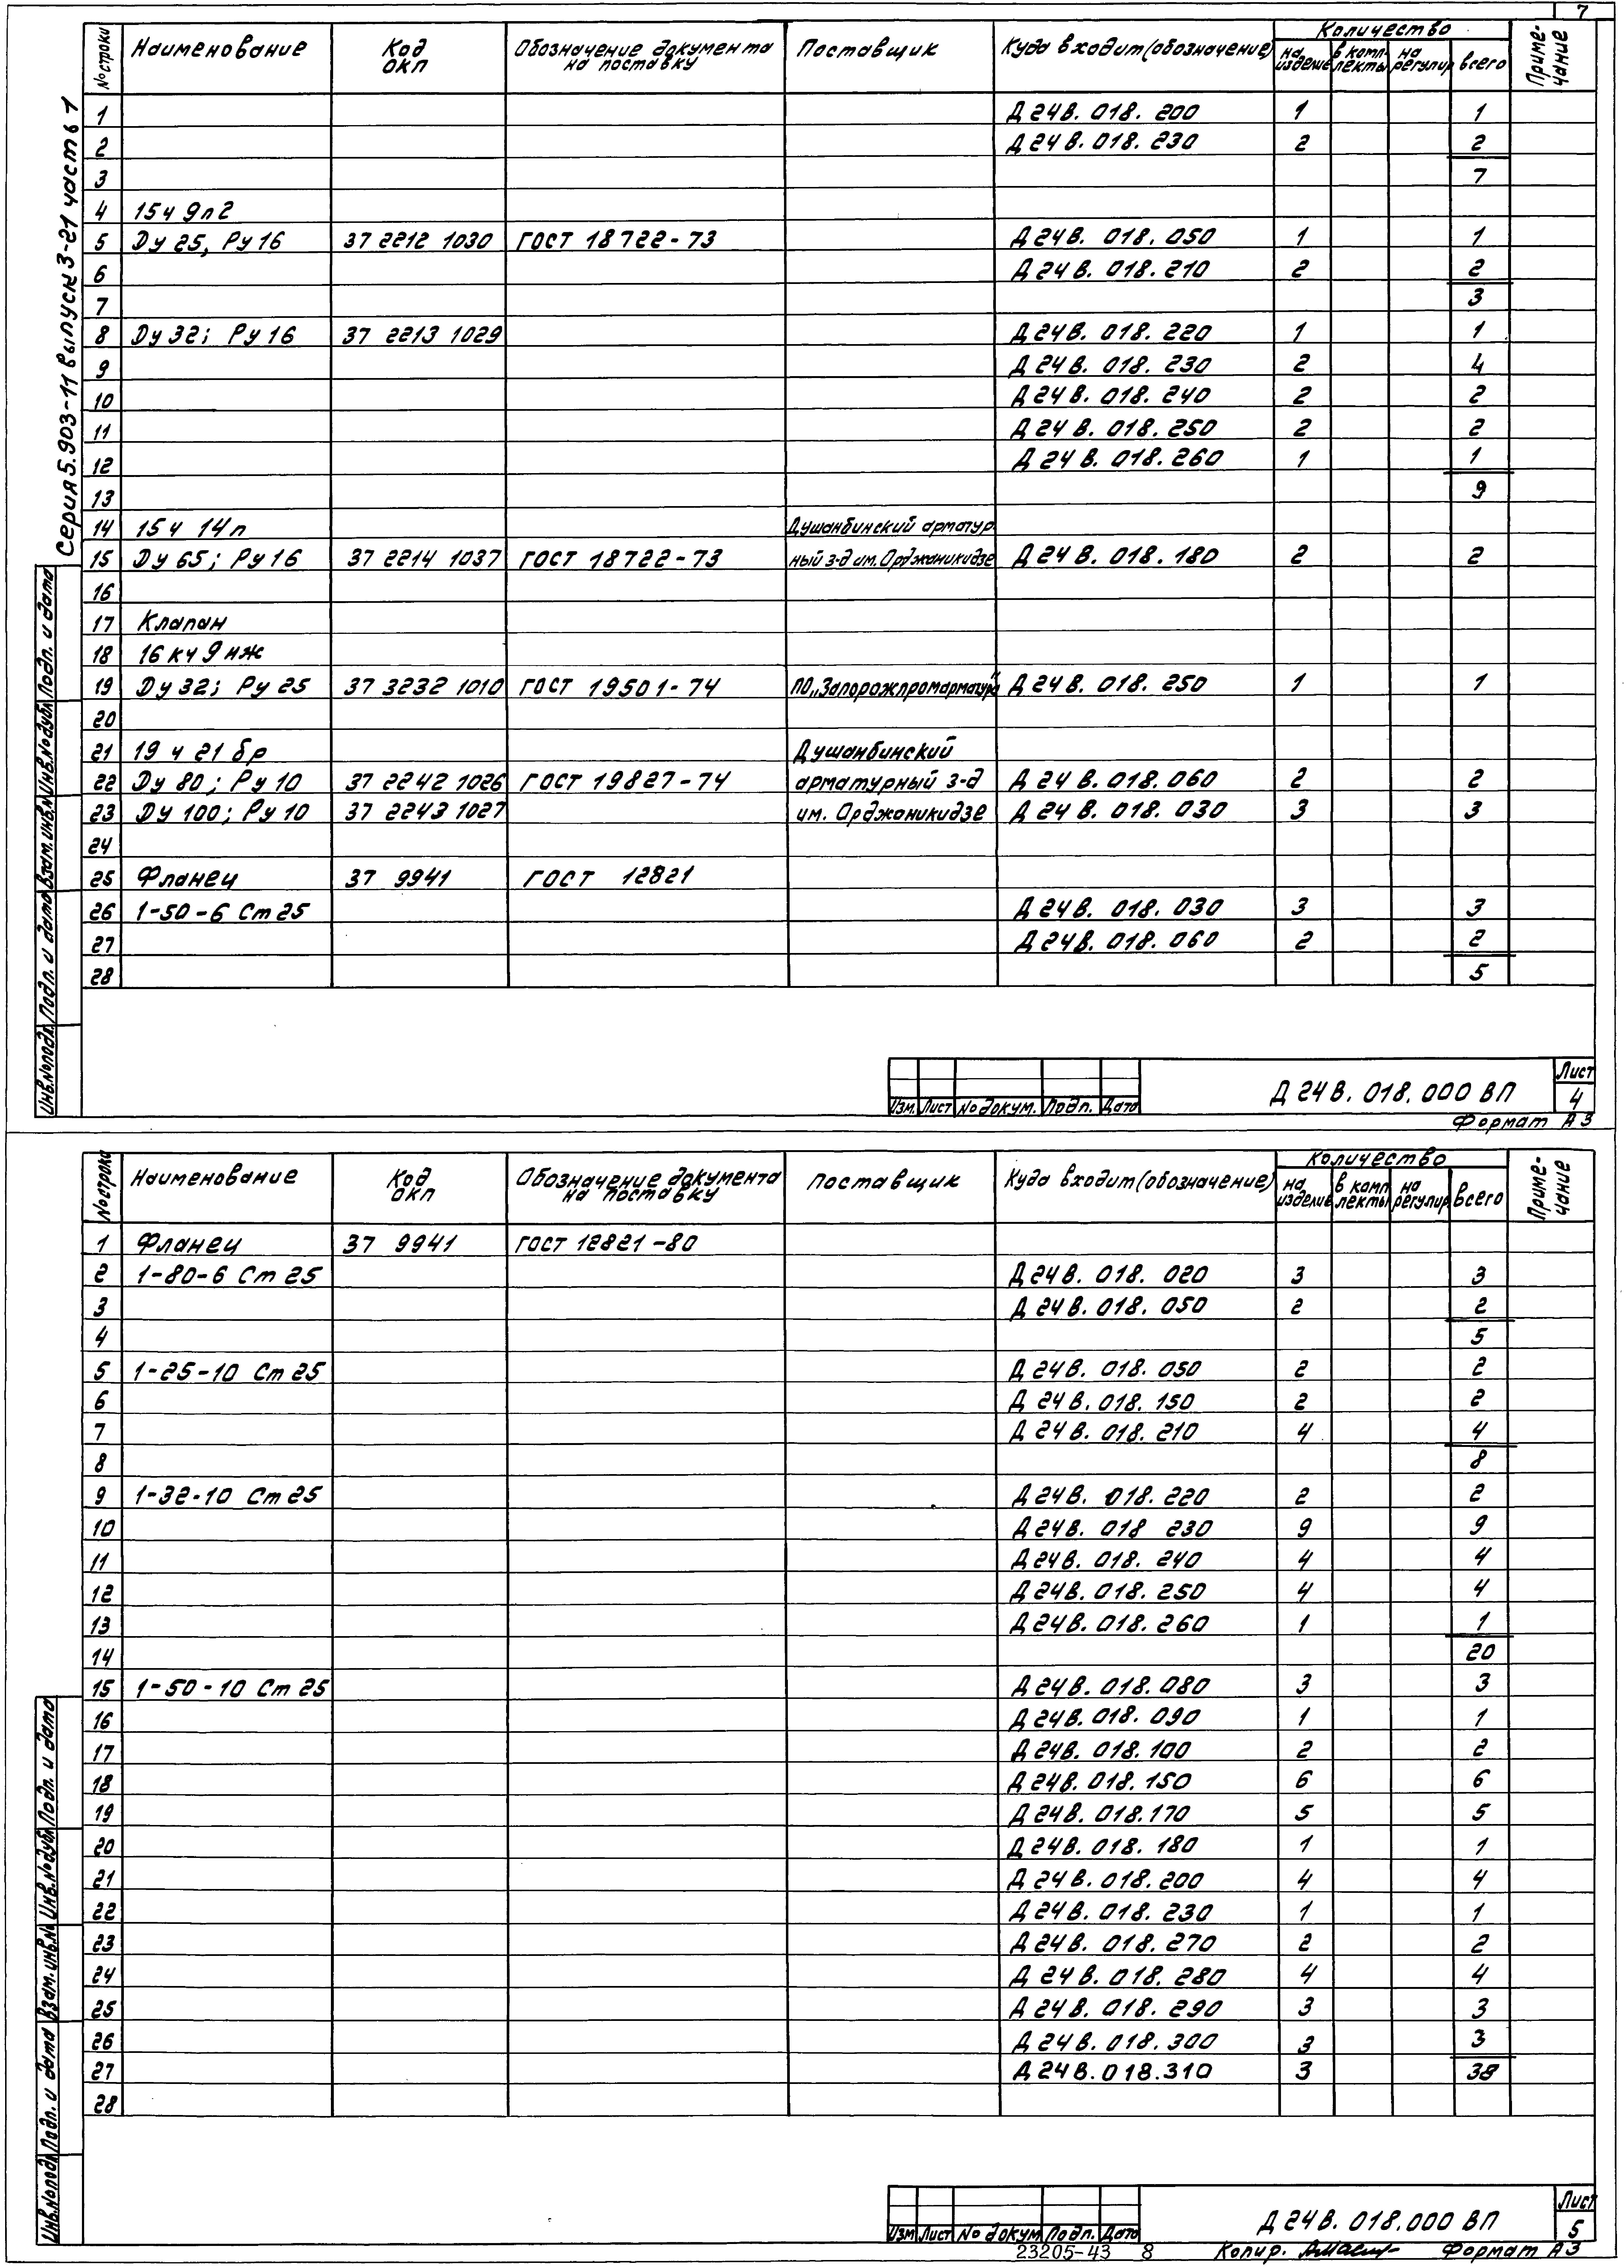 7
Серия 5.903-11 выпуск 3-21 часть 1
№ строки Наименование Код ОКП Обозначение документа на поставку Поставщик Куда входит (обозначение) Количество на изделие в комплекты на регулир. всего Примечание
1 Д 24 В. 018. 200 1 1
2 Д 24 В. 018. 230 2 2
3 7
4 15ч 9п2
5 Ду 25, Ру 16 37 2212 1030 ГОСТ 18722-73 Д 24 В. 018. 050 1 1
6 Д 24 В. 018. 210 2 2
7 3
8 Ду 32; Ру 16 37 2213 1029 Д 24 В. 018. 220 1 1
9 Д 24 В. 018. 230 2 4
10 Д 24 В. 018. 240 2 2
11 Д 24 В. 018. 250 2 2
12 Д 24 В. 018. 260 1 1
13 9
14 15ч 14п Душанбинский арматур
15 Ду 65; Ру 16 37 2214 1037 ГОСТ 18722-73 ный з-д им. Орджоникидзе Д 24 В. 018. 180 2 2
16
17 Клапан
18 16 кч 9 нж
19 Ду 32; Ру 25 37 3232 1010 ГОСТ 19501-74 ПО „Запорожпромарматура" Д 24 В. 018. 250 1 1
20
21 19 ч 21 бр Душанбинский
22 Ду 80; Ру 10 37 2242 1026 ГОСТ 19827-74 арматурный з-д Д 24 В. 018. 060 2 2
23 Ду 100; Ру 10 37 2243 1027 им. Орджоникидзе Д 24 В. 018. 030 3 3
24
25 Фланец 37 9941 ГОСТ 12821
26 1-50-6 Ст 25 Д 24 В. 018. 030 3 3
27 Д 24 В. 018. 060 2 2
28 5
Инв.№подл. Подп. и дата Взам. инв.№ Инв.№дубл. Подп. и дата
Изм. Лист № докум. Подп. Дата Д 24 В. 018. 000 ВП Лист 4
Формат А3
№ строки Наименование Код ОКП Обозначение документа на поставку Поставщик Куда входит (обозначение) Количество на изделие в комплекты на регулир. всего Примечание
1 Фланец 37 9941 ГОСТ 12821-80
2 1-80-6 Ст 25 Д 24 В. 018. 020 3 3
3 Д 24 В. 018. 050 2 2
4 5
5 1-25-10 Ст 25 Д 24 В. 018. 050 2 2
6 Д 24 В. 018. 150 2 2
7 Д 24 В. 018. 210 4 4
8 8
9 1-32-10 Ст 25 Д 24 В. 018. 220 2 2
10 Д 24 В. 018 230 9 9
11 Д 24 В. 018. 240 4 4
12 Д 24 В. 018. 250 4 4
13 Д 24 В. 018. 260 1 1
14 20
15 1-50-10 Ст 25 Д 24 В. 018. 080 3 3
16 Д 24 В. 018. 090 1 1
17 Д 24 В. 018. 100 2 2
18 Д 24 В. 018. 150 6 6
19 Д 24 В. 018. 170 5 5
20 Д 24 В. 018. 180 1 1
21 Д 24 В. 018. 200 4 4
22 Д 24 В. 018. 230 1 1
23 Д 24 В. 018. 270 2 2
24 Д 24 В. 018. 280 4 4
25 Д 24 В. 018. 290 3 3
26 Д 24 В. 018. 300 3 3
27 Д 24 В. 018. 310 3 38
28
Инв.№подл. Подп. и дата Взам. инв.№ Инв.№дубл. Подп. и дата
Изм. Лист № докум. Подп. Дата Д 24 В. 018. 000 ВП Лист 5
23205-43 8 Копир. Формат А3